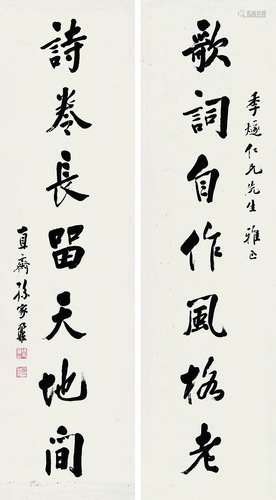 季燧仁兄先生 雅正
歌詞自作風格老
詩卷長留天地間
直齋孫家鼐